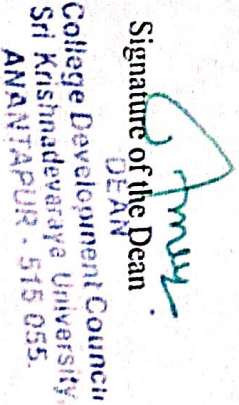 Signature of the Dean
DEAN
College Development Council
Sri Krishnadevaraya University,
ANANTAPUR - 515 055.